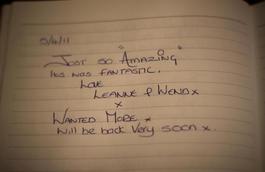 5/4/11
Just so "Amazing"
Its was fantastic.
Love
Leanne & Wend x
x
Wanted More x
Will be back Very soon x.